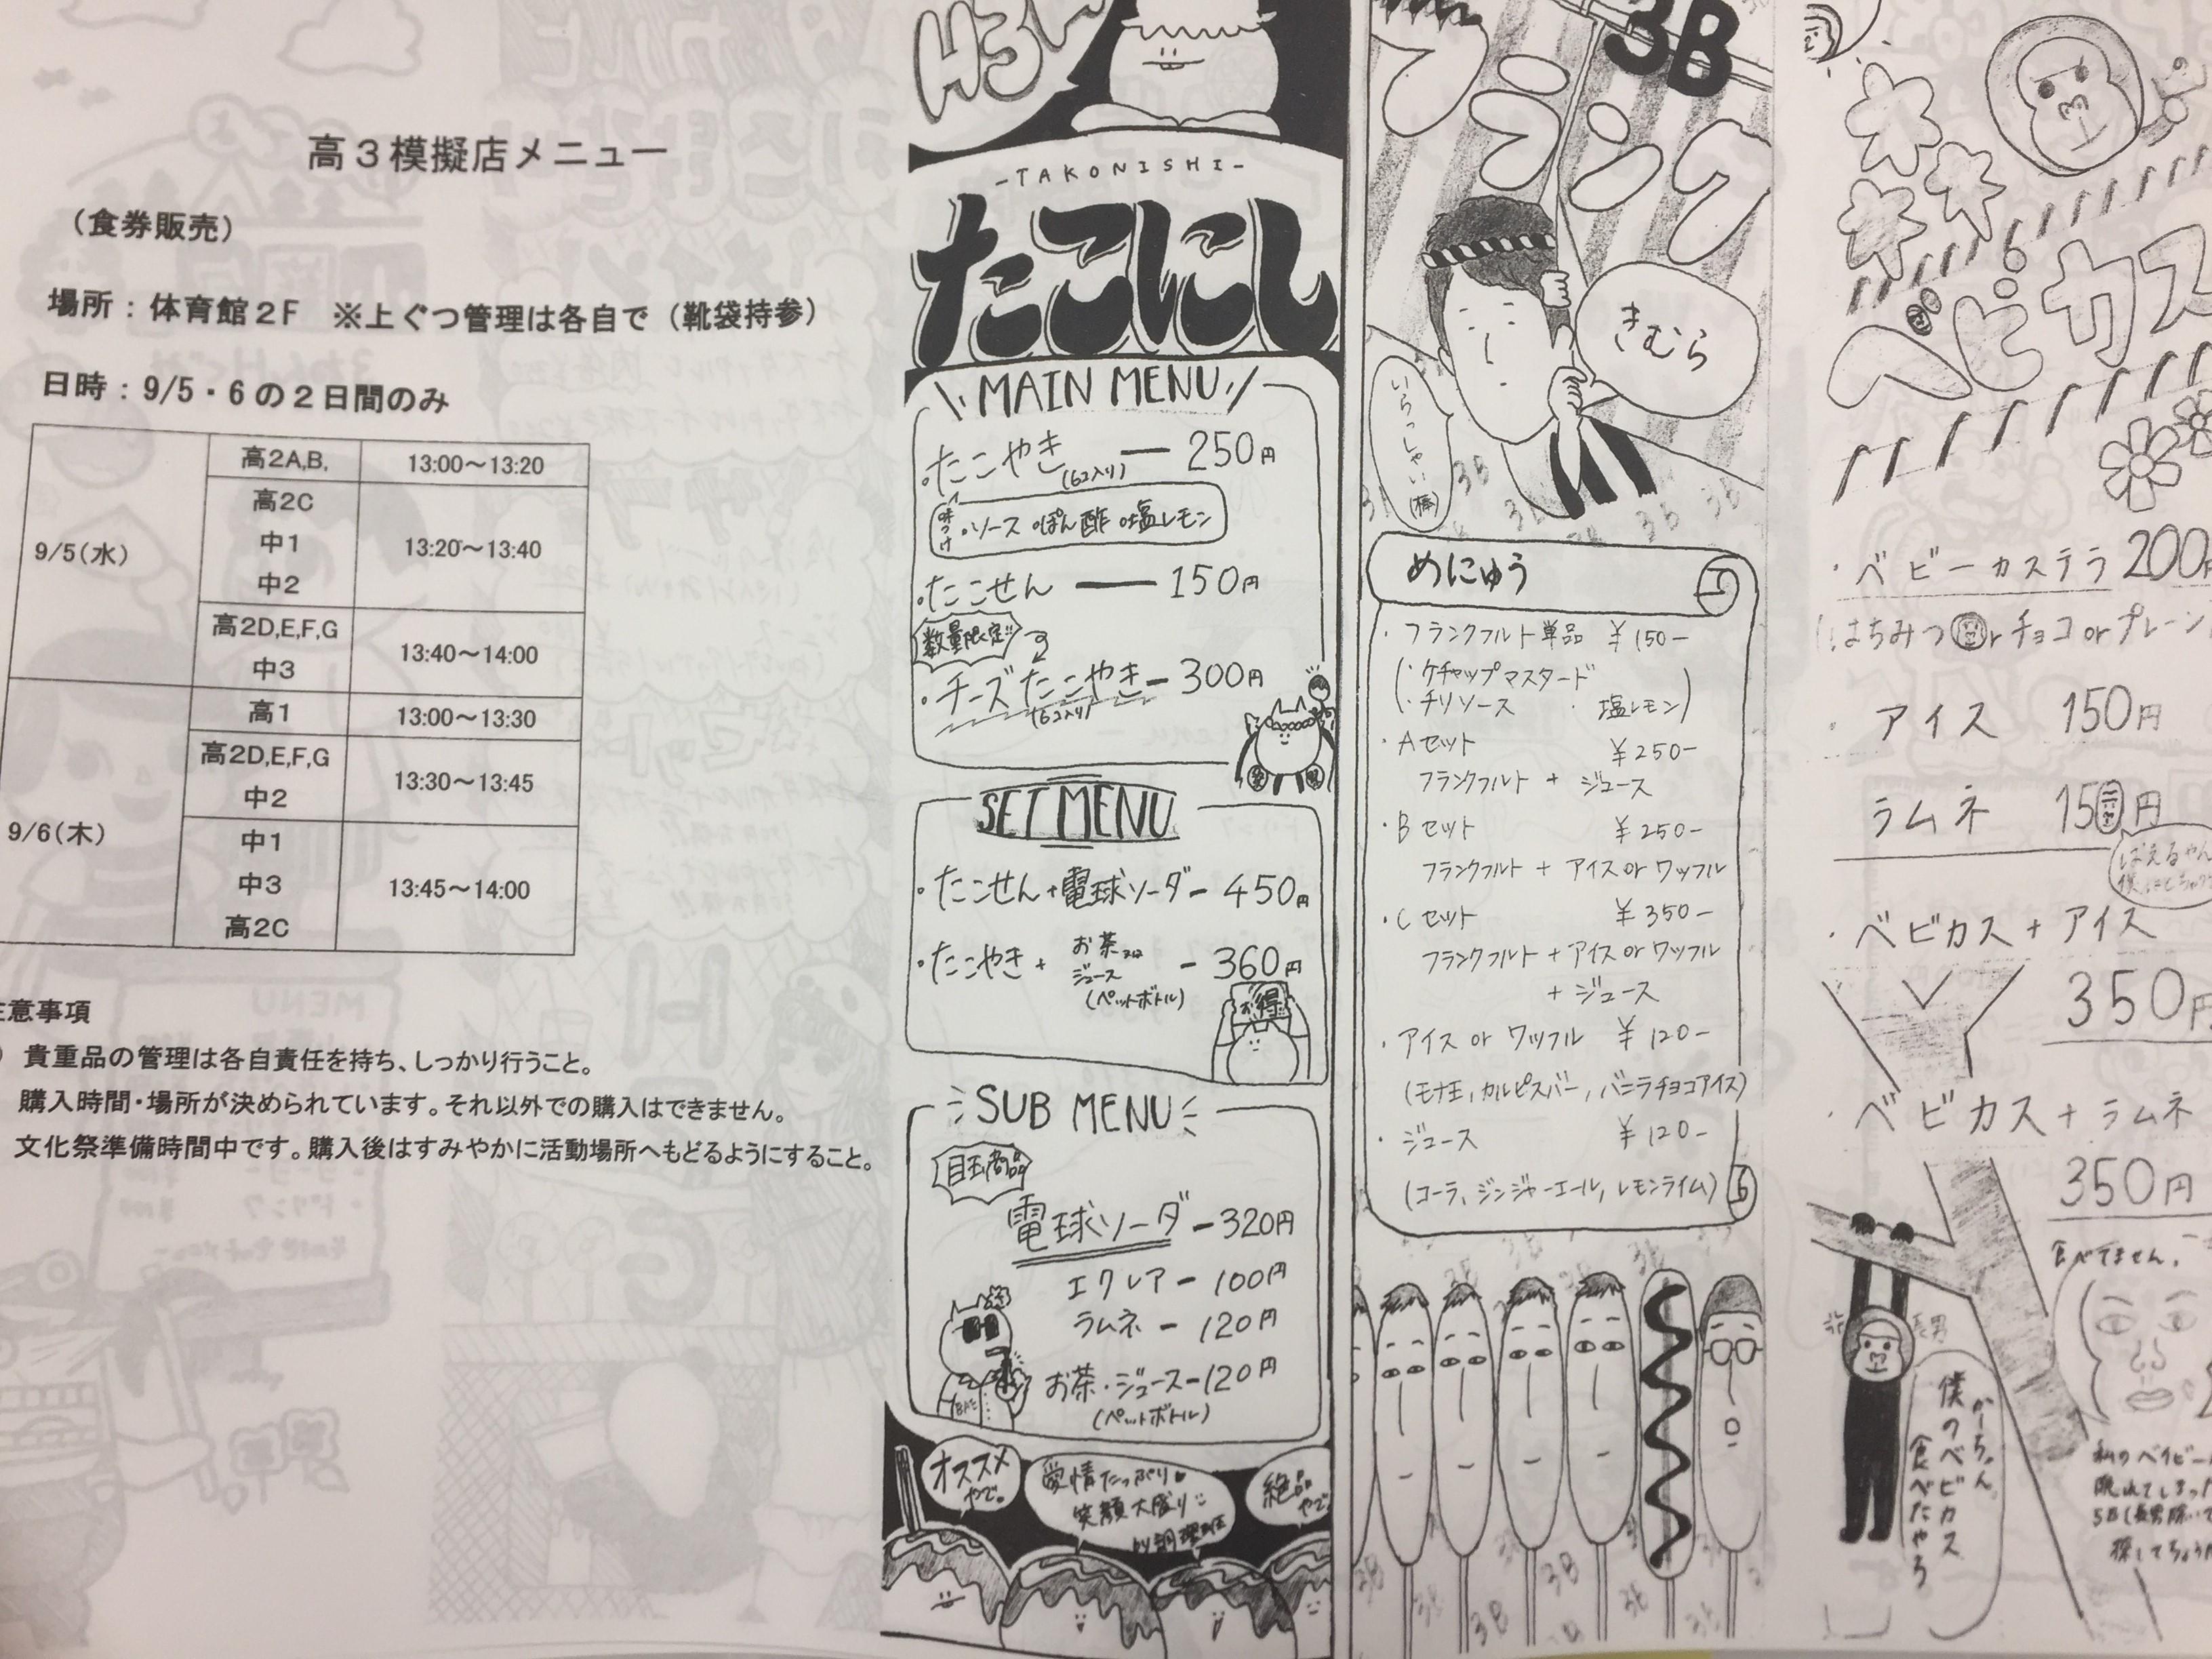 高3模擬店メニュー
（食券販売）
場所：体育館2F　※上ぐつ管理は各自で（靴袋持参）
日時：9/5・6の2日間のみ
9/5(水)
高2A,B,　13:00～13:20
高2C
中1　13:20～13:40
中2
高2D,E,F,G　13:40～14:00
中3
9/6(木)
高1　13:00～13:30
高2D,E,F,G　13:30～13:45
中2
中1
中3　13:45～14:00
高2C
意事項
貴重品の管理は各自責任を持ち、しっかり行うこと。
購入時間・場所が決められています。それ以外での購入はできません。
文化祭準備時間中です。購入後はすみやかに活動場所へもどるようにすること。
H3
-TAKONISHI-
たこにし
MAIN MENU
・たこやき(6コ入り) — 250円
味つけ ・ソース ・ぽん酢 ・塩レモン
・たこせん — 150円
数量限定!!
・チーズたこやき(6コ入り) — 300円
SET MENU
・たこせん+電球ソーダ - 450円
・たこやき+ お茶 or ジュース (ペットボトル) - 360円
お得
SUB MENU
目玉商品
電球ソーダ - 320円
エクレア - 100円
ラムネ - 120円
お茶・ジュース - 120円
(ペットボトル)
オススメやで。
愛情たっぷり♥
笑顔大盛り
by調理班
絶品やで
3B
フランク
きむら
いらっしゃい(棒)
めにゅう
・フランクフルト単品 ¥150-
(・ケチャップマスタード
・チリソース ・塩レモン)
・Aセット ¥250-
フランクフルト + ジュース
・Bセット ¥250-
フランクフルト + アイス or ワッフル
・Cセット ¥350-
フランクフルト + アイス or ワッフル
+ ジュース
・アイス or ワッフル ¥120-
(モナ王, カルピスバー, バニラチョコアイス)
・ジュース ¥120-
(コーラ, ジンジャーエール, レモンライム)
ベビカス
・ベビーカステラ 200円
(はちみつ or チョコ or プレーン
・アイス 150円
ラムネ 150円
・ベビカス+アイス
350円
・ベビカス+ラムネ
350円
食べてません。
長男
かーちゃん
僕のベビカス
食べたやろ
私のベイビー